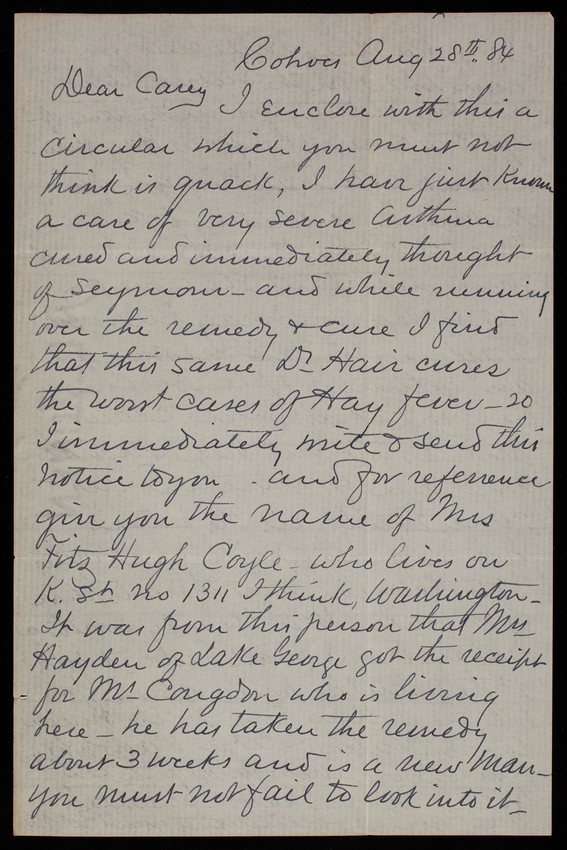 Cohoes Aug 28th. 84
Dear Casey
I enclose with this a
circular which you must not
think is quack, I have just known
a case of very severe Asthma
cured and immediately thought
of Seymour - and while running
over the remedy & cure I find
that this same Dr Hair cures
the worst cases of Hay fever - so
I immediately write & send this
notice to you . and for reference
give you the name of Mrs
Fitz Hugh Coyle - who lives on
K. St no 1311 I think, Washington -
It was from this person that Mrs
Hayden of Lake George got the receipt
for Mr Congdon who is living
here - he has taken the remedy
about 3 weeks and is a new man -
you must not fail to look into it -